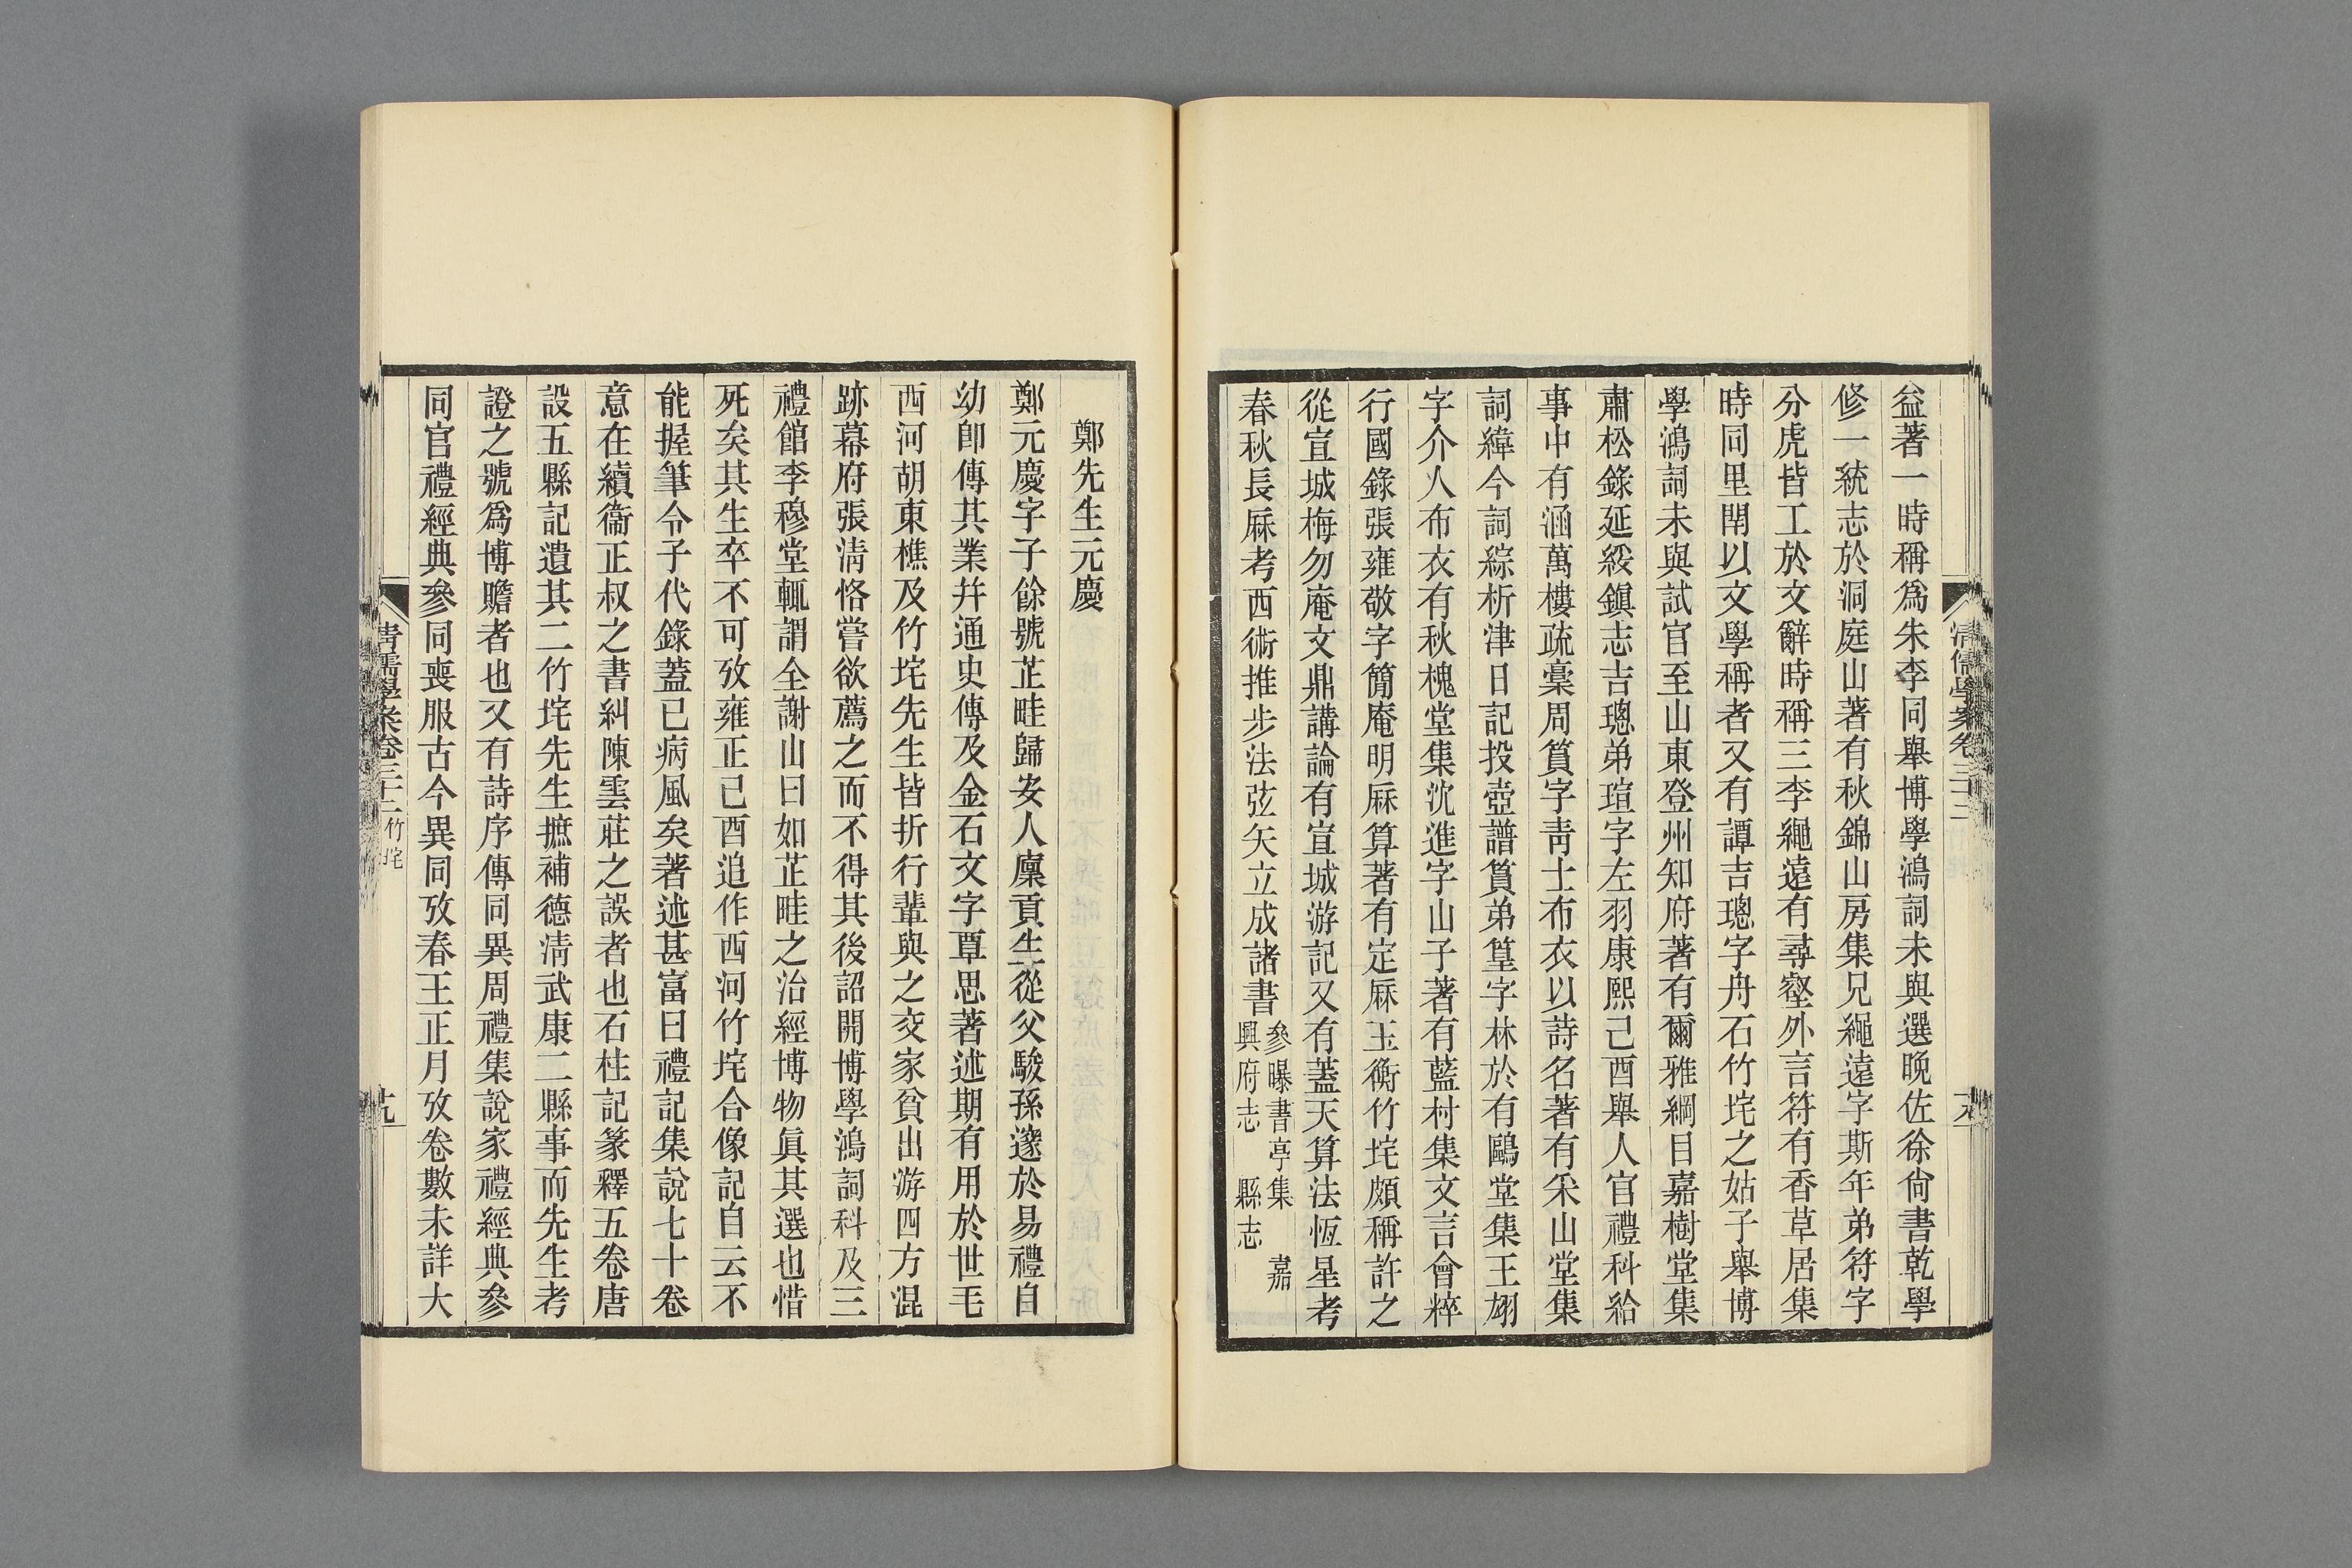 益著一時稱爲朱李同舉博學鴻詞未與選晚佐徐尙書乾學
修一統志於洞庭山著有秋錦山房集兄繩遠字斯年弟符字
分虎皆工於文辭時稱三李繩遠有尋壑外言符有香草居集
時同里閈以文學稱者又有譚吉璁字舟石竹垞之姑子舉博
學鴻詞未與試官至山東登州知府著有爾雅綱目嘉樹堂集
肅松錄延綏鎭志吉璁弟瑄字左羽康熙己酉舉人官禮科給
事中有涵萬樓疏稾周篔字靑士布衣以詩名著有采山堂集
詞緯今詞綜析津日記投壺譜篔弟篁字林於有鷗堂集王翃
字介人布衣有秋槐堂集沈進字山子著有藍村集文言會粹
行國錄張雍敬字簡庵明厤算著有定厤玉衡竹垞頗稱許之
從宣城梅勿庵文鼎講論有宣城游記又有蓋天算法恆星考
春秋長厤考西術推步法弦矢立成諸書
參曝書亭集 嘉
興府志 縣志
清儒學案卷三十二
鄭先生元慶
鄭元慶字子餘號芷畦歸安人廩貢生從父駿孫邃於易禮自
幼卽傳其業幷通史傳及金石文字覃思著述期有用於世毛
西河胡東樵及竹垞先生皆折行輩與之交家貧出游四方混
跡幕府張淸恪嘗欲薦之而不得其後詔開博學鴻詞科及三
禮館李穆堂輒謂全謝山曰如芷畦之治經博物眞其選也惜
死矣其生卒不可攷雍正己酉追作西河竹垞合像記自云不
能握筆令子代錄蓋已病風矣著述甚富曰禮記集說七十卷
意在續衞正叔之書糾陳雲莊之誤者也石柱記篆釋五卷唐
設五縣記遺其二竹垞先生摭補德淸武康二縣事而先生考
證之號爲博贍者也又有詩序傳同異周禮集說家禮經典參
同官禮經典參同喪服古今異同攷春王正月攷卷數未詳大
淸儒學案卷三十二 竹垞
十九